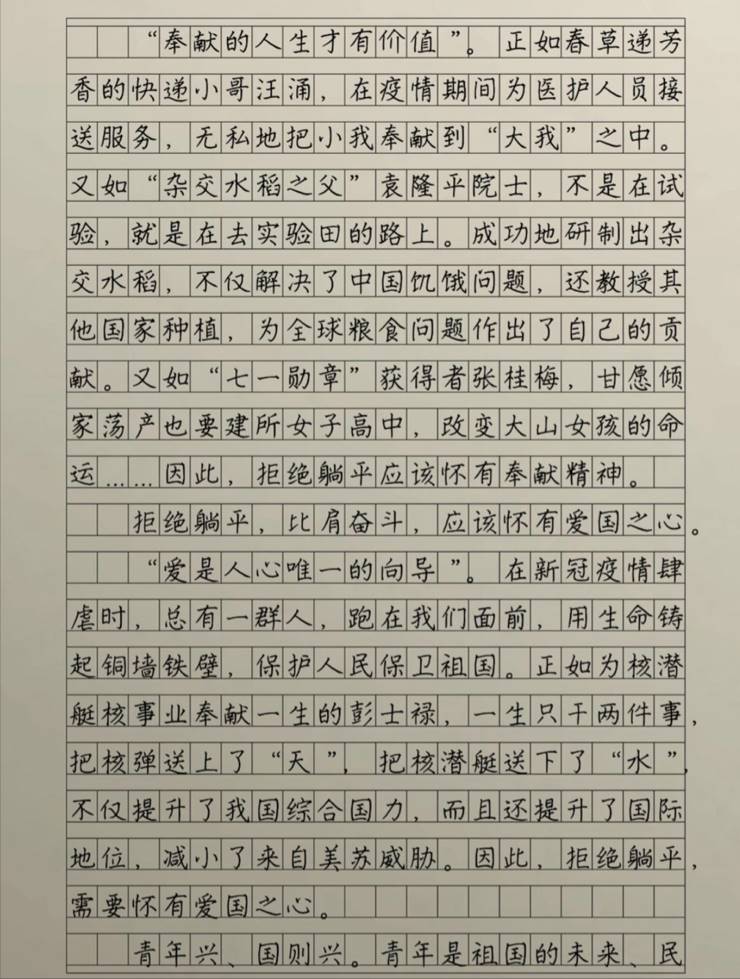 “奉献的人生才有价值”。正如春草递芳
香的快递小哥汪涌，在疫情期间为医护人员接
送服务，无私地把小我奉献到“大我”之中。
又如“杂交水稻之父”袁隆平院士，不是在试
验，就是在去实验田的路上。成功地研制出杂
交水稻，不仅解决了中国饥饿问题，还教授其
他国家种植，为全球粮食问题作出了自己的贡
献。又如“七一勋章”获得者张桂梅，甘愿倾
家荡产也要建所女子高中，改变大山女孩的命
运……因此，拒绝躺平应该怀有奉献精神。
拒绝躺平，比肩奋斗，应该怀有爱国之心。
“爱是人心唯一的向导”。在新冠疫情肆
虐时，总有一群人，跑在我们面前，用生命铸
起铜墙铁壁，保护人民保卫祖国。正如为核潜
艇核事业奉献一生的彭士禄，一生只干两件事，
把核弹送上了“天”，把核潜艇送下了“水”，
不仅提升了我国综合国力，而且还提升了国际
地位，减小了来自美苏威胁。因此，拒绝躺平，
需要怀有爱国之心。
青年兴、国则兴。青年是祖国的未来、民